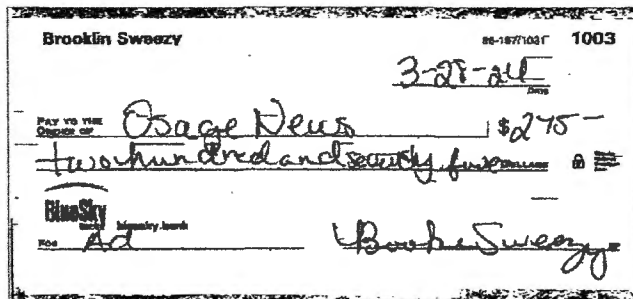 Brooklin Sweezy 86-157/1031 1003
3-28-24
DATE
PAY TO THE
ORDER OF Osage News $ 275 —
two hundred and seventy five DOLLARS
BlueSky
bank bluesky.bank
FOR Ad Brooke Sweezy